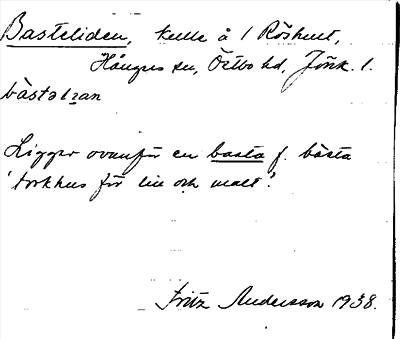 Basteliden, kulle å 1 Röshult,
Hånger sn, Östbo hd, Jönk. l.
bàstəlɪan
Ligger ovanför en basta f. bàsta
'torkhus för lin och malt'.
Fritz Andersson 1938.